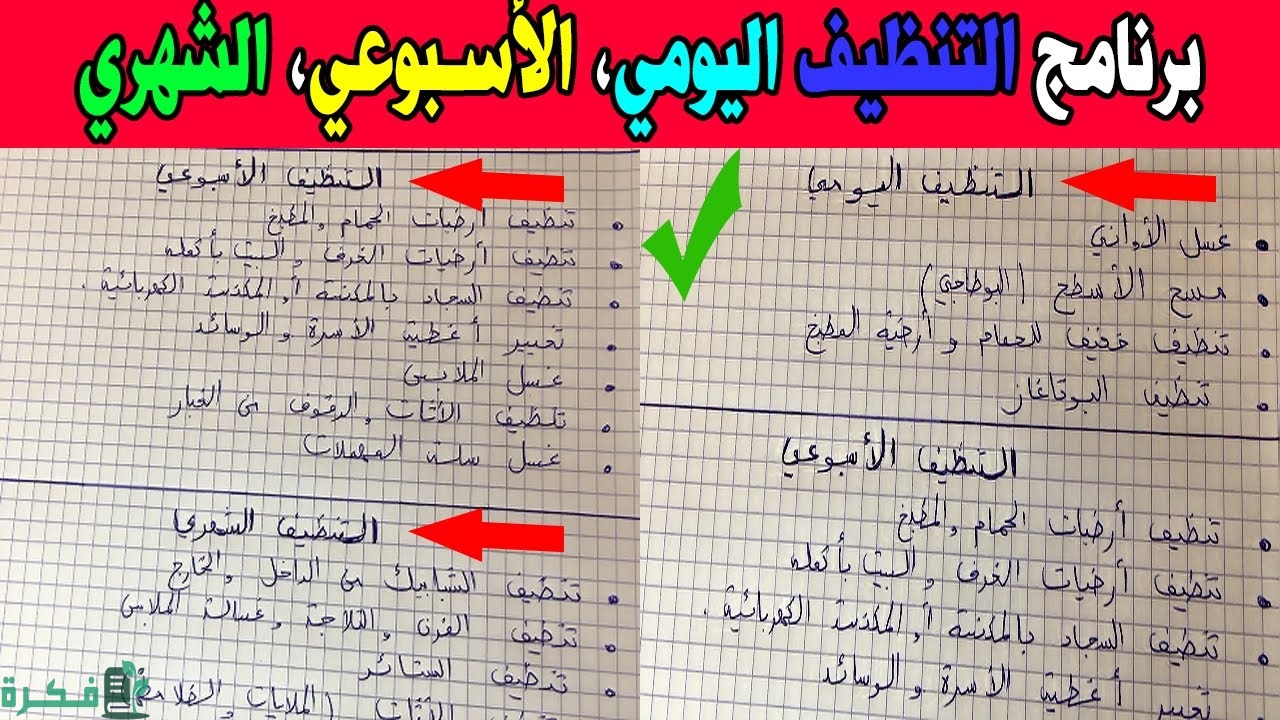 برنامج التنظيف اليومي، الأسبوعي، الشهري
التنظيف اليومي
غسل الأواني
مسح الأسطح (البوطاجي)
تنظيف خفيف للحمام و أرضية المطبخ
تنظيف البوتاغاز
التنظيف الأسبوعي
تنظيف أرضيات الحمام والمطبخ
تنظيف أرضيات الغرف والبيت بأكمله
تنظيف السجاد بالمكنسة أو المكنسة الكهربائية.
تغيير أغطية الأسرة والوسائد
التنظيف الأسبوعي
تنظيف أرضيات الحمام والمطبخ
تنظيف أرضيات الغرف والبيت بأكمله
تنظيف السجاد بالمكنسة أو المكنسة الكهربائية.
تغيير أغطية الأسرة والوسائد
غسل الملابس
تنظيف الأثاث والرفوف من الغبار
غسل سلة المهملات
التنظيف الشهري
تنظيف الشبابيك من الداخل والخارج
تنظيف الفرن والثلاجة وغسالة الملابس
تنظيف الستائر
الأثاث (الملايات
فكرة